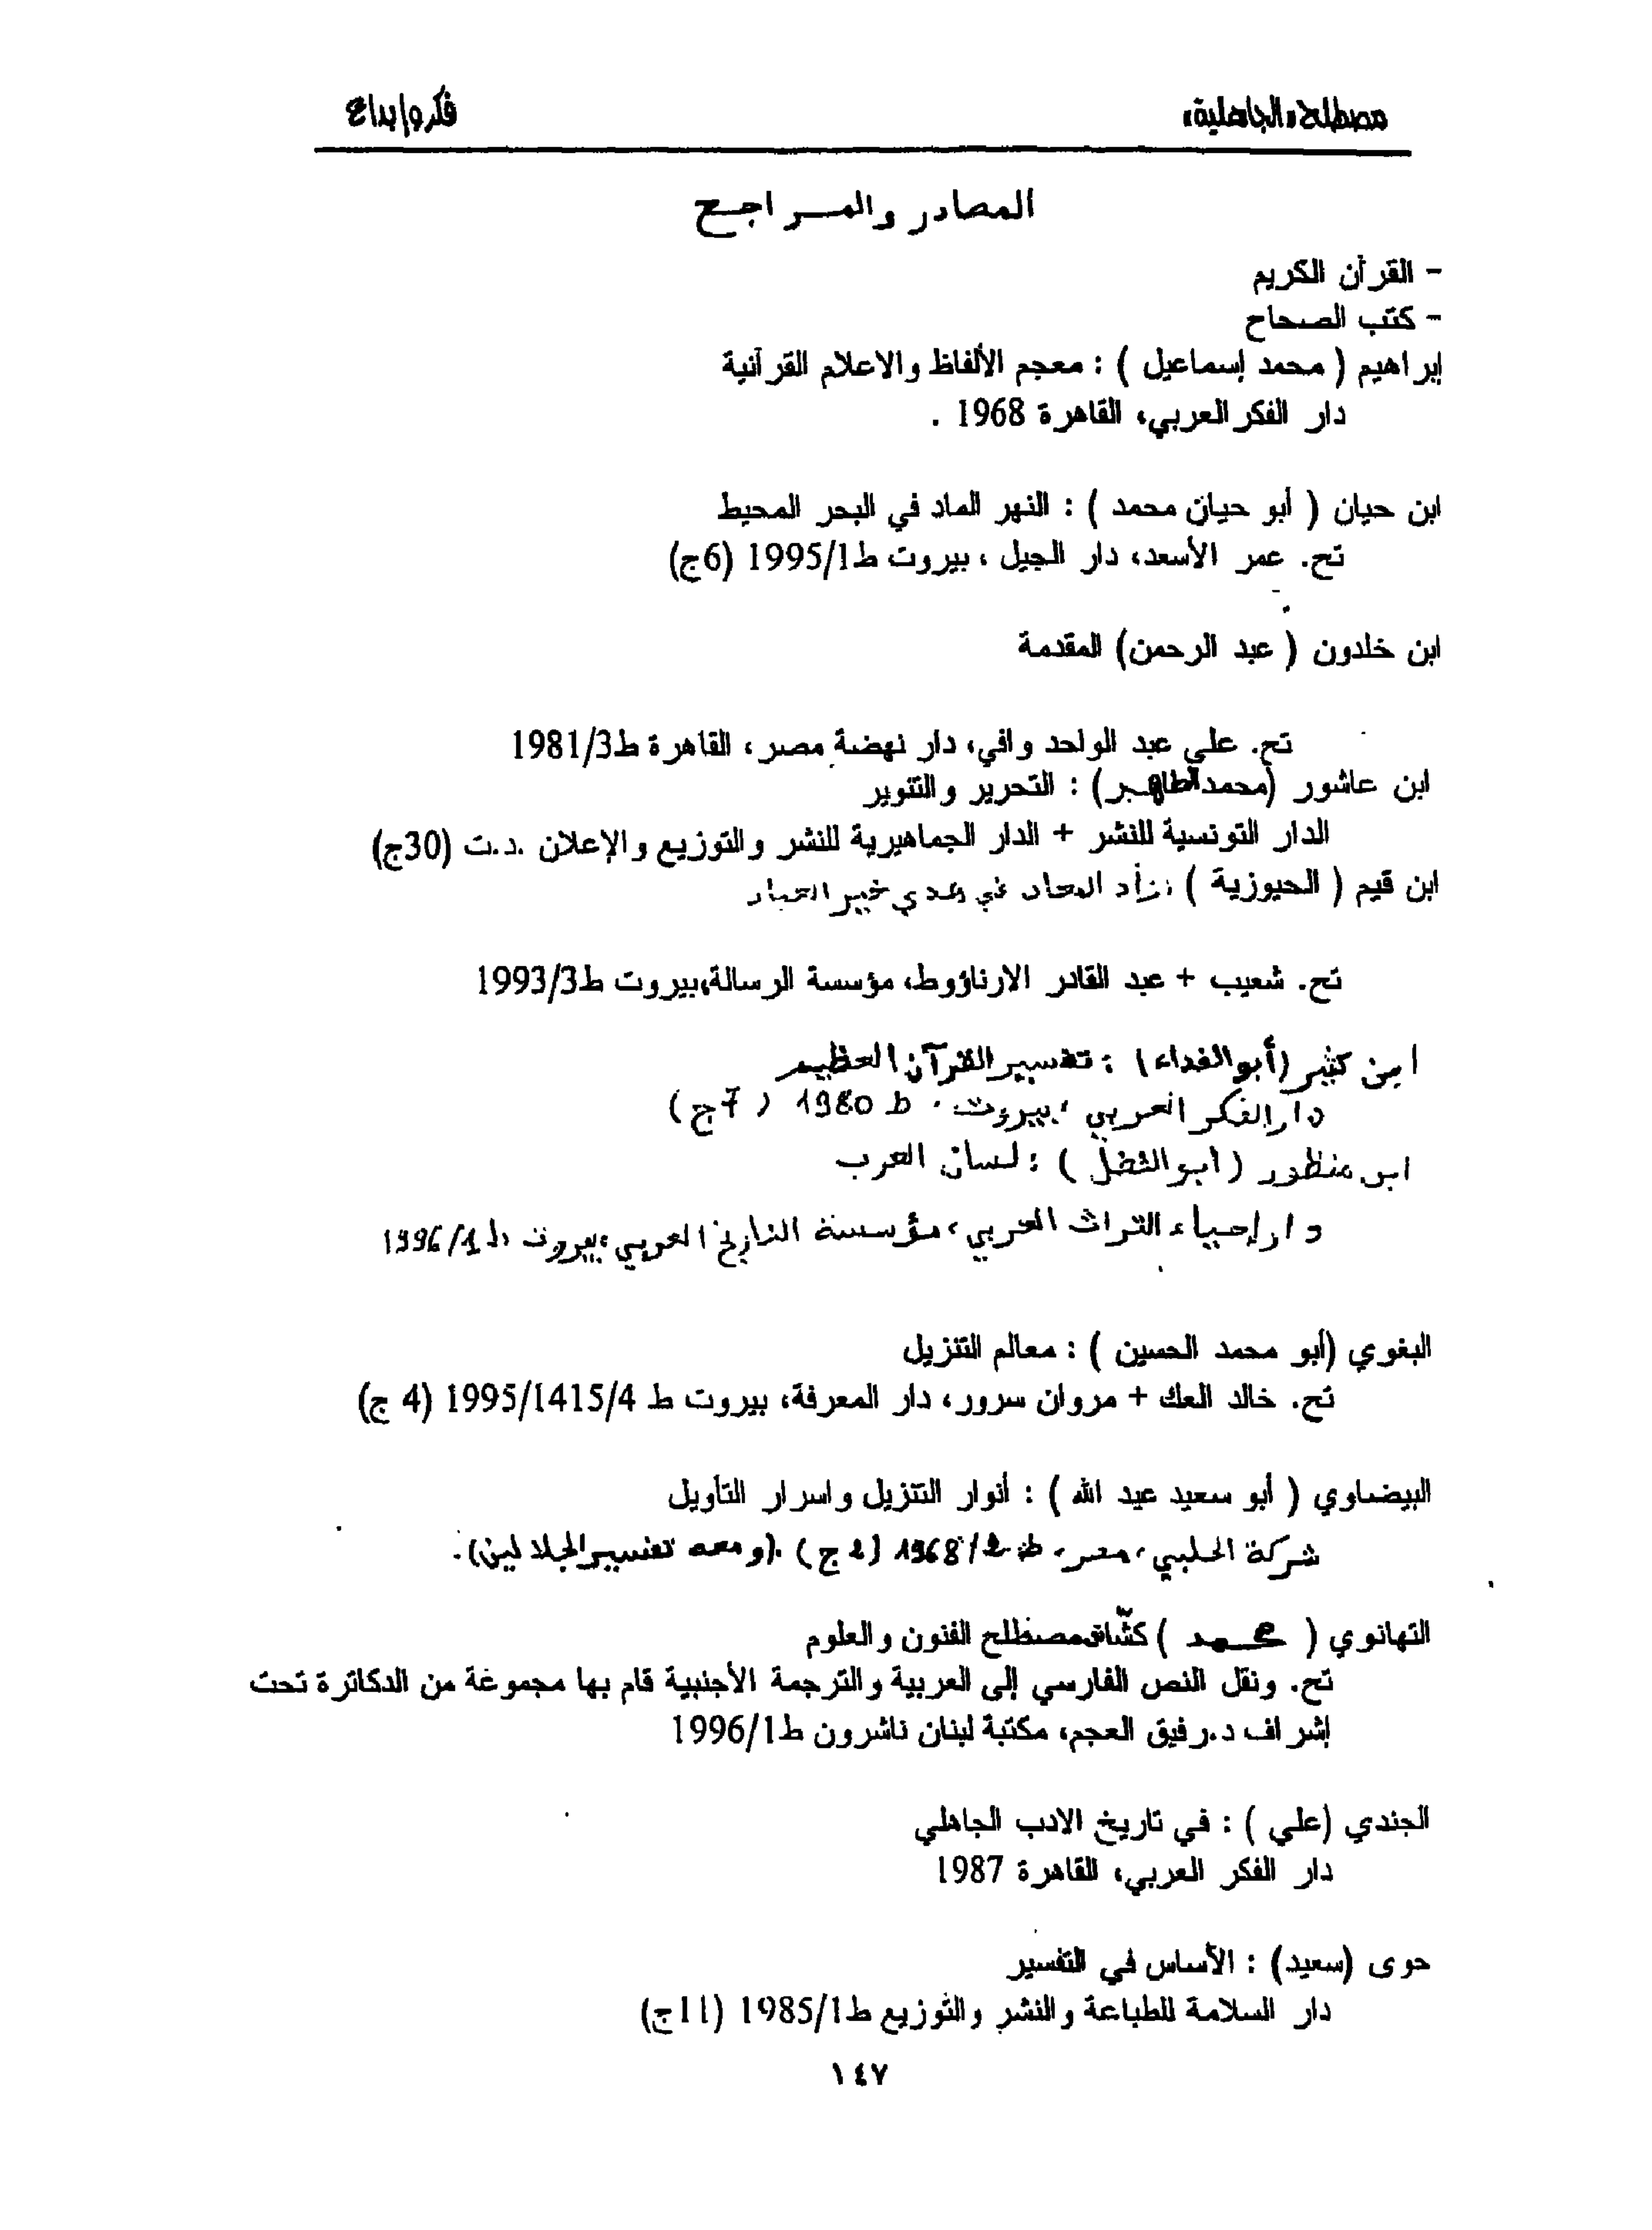 مصطلح «الجاهلية»
فكر وإبداع
المصادر والمراجع
- القرآن الكريم
- كتب الصحاح
إبراهيم ( محمد إسماعيل ) : معجم الألفاظ والاعلام القرآنية
دار الفكر العربي، القاهرة 1968 .
ابن حيان ( أبو حيان محمد ) : النهر الماد في البحر المحيط
تح. عمر الأسعد، دار الجيل ، بيروت ط1/1995 (6ج)
ابن خلدون ( عبد الرحمن) المقدمة
تح. علي عبد الواحد وافي، دار نهضة مصر، القاهرة ط3/1981
ابن عاشور (محمد الطاهر) : التحرير والتنوير
الدار التونسية للنشر + الدار الجماهيرية للنشر والتوزيع والإعلان .د.ت (30ج)
ابن قيم ( الحيوزية ) : زاد المعاد في هدي خير العباد
تح. شعيب + عبد القادر الارناؤوط، مؤسسة الرسالة،بيروت ط3/1993
ابن كثير (أبو الفداء) : تفسير القرآن العظيم
دار الفكر العربي ، بيروت . ط 1980 ( 7ج )
ابن منظور ( ابو الفضل ) : لسان العرب
دار إحياء التراث العربي، مؤسسة التاريخ العربي ، بيروت ط1/1996
البغوي (أبو محمد الحسين ) : معالم التنزيل
تح. خالد العك + مروان سرور، دار المعرفة، بيروت ط 4/1415/1995 (4 ج)
البيضاوي ( أبو سعيد عبد الله ) : أنوار التنزيل واسرار التأويل
شركة الحلبي، مصر، ط 2/1968 (2 ج) .(ومعه تفسير الجلالين).
التهانوي ( محمد ) كشّاف مصطلح الفنون والعلوم
تح. ونقل النص الفارسي إلى العربية والترجمة الأجنبية قام بها مجموعة من الدكاترة تحت
إشراف د.رفيق العجم، مكتبة لبنان ناشرون ط1/1996
الجندي (علي ) : في تاريخ الادب الجاهلي
دار الفكر العربي، القاهرة 1987
حوى (سعيد) : الأساس في التفسير
دار السلامة للطباعة والنشر والتوزيع ط1/1985 (11ج)
١٤٧